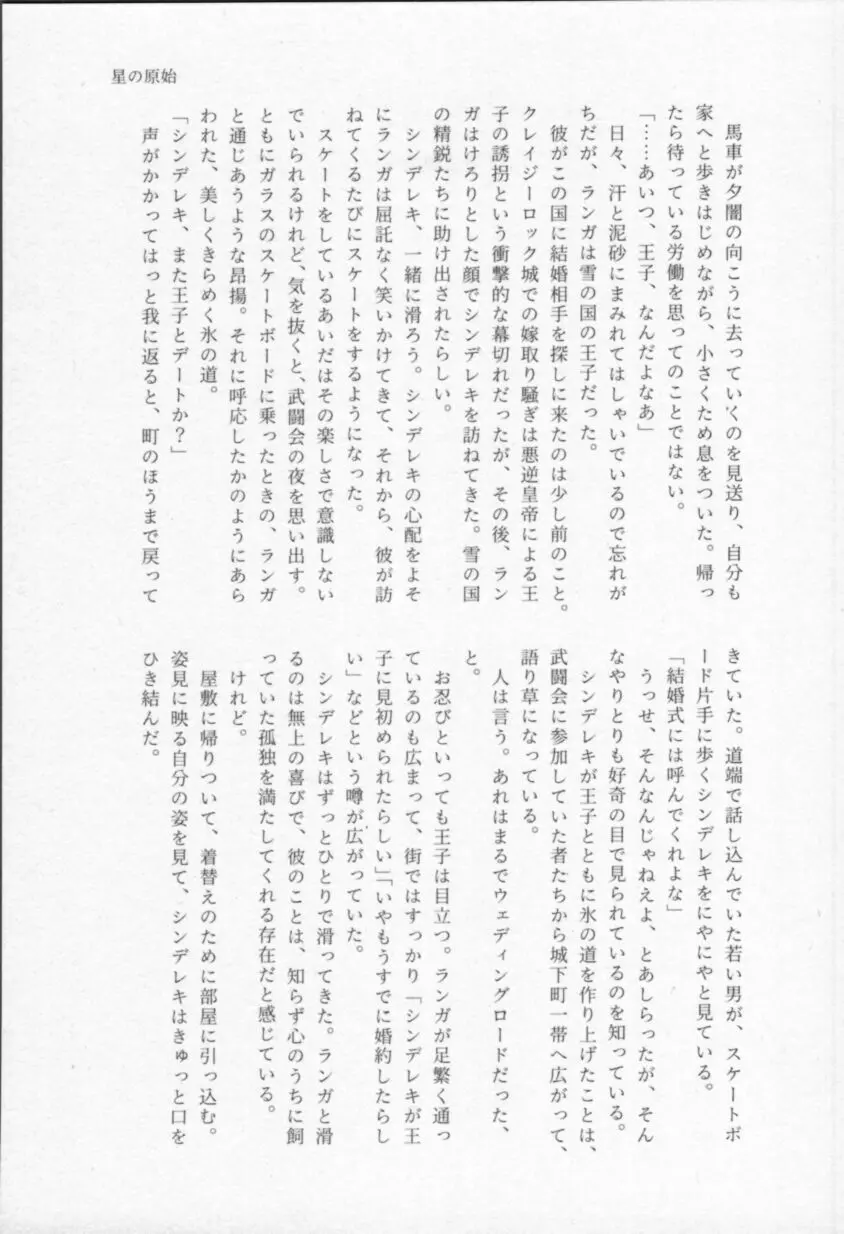 星の原始
馬車が夕闇の向こうに去っていくのを見送り、自分も
家へと歩きはじめながら、小さくため息をついた。帰っ
たら待っている労働を思ってのことではない。
「……あいつ、王子、なんだよなあ」
日々、汗と泥砂にまみれてはしゃいでいるので忘れが
ちだが、ランガは雪の国の王子だった。
彼がこの国に結婚相手を探しに来たのは少し前のこと。
クレイジーロック城での嫁取り騒ぎは悪逆皇帝による王
子の誘拐という衝撃的な幕切れだったが、その後、ラン
ガはけろりとした顔でシンデレキを訪ねてきた。雪の国
の精鋭たちに助け出されたらしい。
シンデレキ、一緒に滑ろう。シンデレキの心配をよそ
にランガは屈託なく笑いかけてきて、それから、彼が訪
ねてくるたびにスケートをするようになった。
スケートをしているあいだはその楽しさで意識しない
でいられるけれど、気を抜くと、武闘会の夜を思い出す。
ともにガラスのスケートボードに乗ったときの、ランガ
と通じあうような昂揚。それに呼応したかのようにあら
われた、美しくきらめく氷の道。
「シンデレキ、また王子とデートか？」
声がかかってはっと我に返ると、町のほうまで戻って
きていた。道端で話し込んでいた若い男が、スケートボ
ード片手に歩くシンデレキをにやにやと見ている。
「結婚式には呼んでくれよな」
うっせ、そんなんじゃねえよ、とあしらったが、そん
なやりとりも好奇の目で見られているのを知っている。
シンデレキが王子とともに氷の道を作り上げたことは、
武闘会に参加していた者たちから城下町一帯へ広がって、
語り草になっている。
人は言う。あれはまるでウェディングロードだった、
と。
お忍びといっても王子は目立つ。ランガが足繁く通っ
ているのも広まって、街ではすっかり「シンデレキが王
子に見初められたらしい」「いやもうすでに婚約したらし
い」などという噂が広がっていた。
シンデレキはずっとひとりで滑ってきた。ランガと滑
るのは無上の喜びで、彼のことは、知らず心のうちに飼
っていた孤独を満たしてくれる存在だと感じている。
けれど。
屋敷に帰りついて、着替えのために部屋に引っ込む。
姿見に映る自分の姿を見て、シンデレキはきゅっと口を
ひき結んだ。